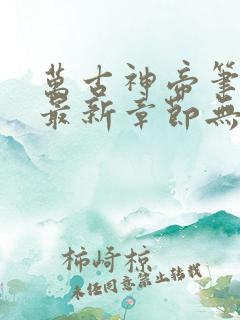 萬古神帝筆
最新章節無
柿崎椋
未經同意禁止轉載